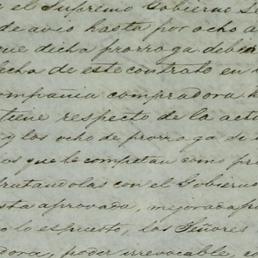 el Supremo Gobierno Su
de avio hasta por ocho a
que dicha prorroga deber
fecha de este contrato en
ompania compradora h
tiene respecto de la actu
y los ocho de prorroga de
os que le competan como pr
tratandolas con el Gobierno
sta aprovada, mejorada
lo espuesto, los Señores
dora, poder irrevocable, e